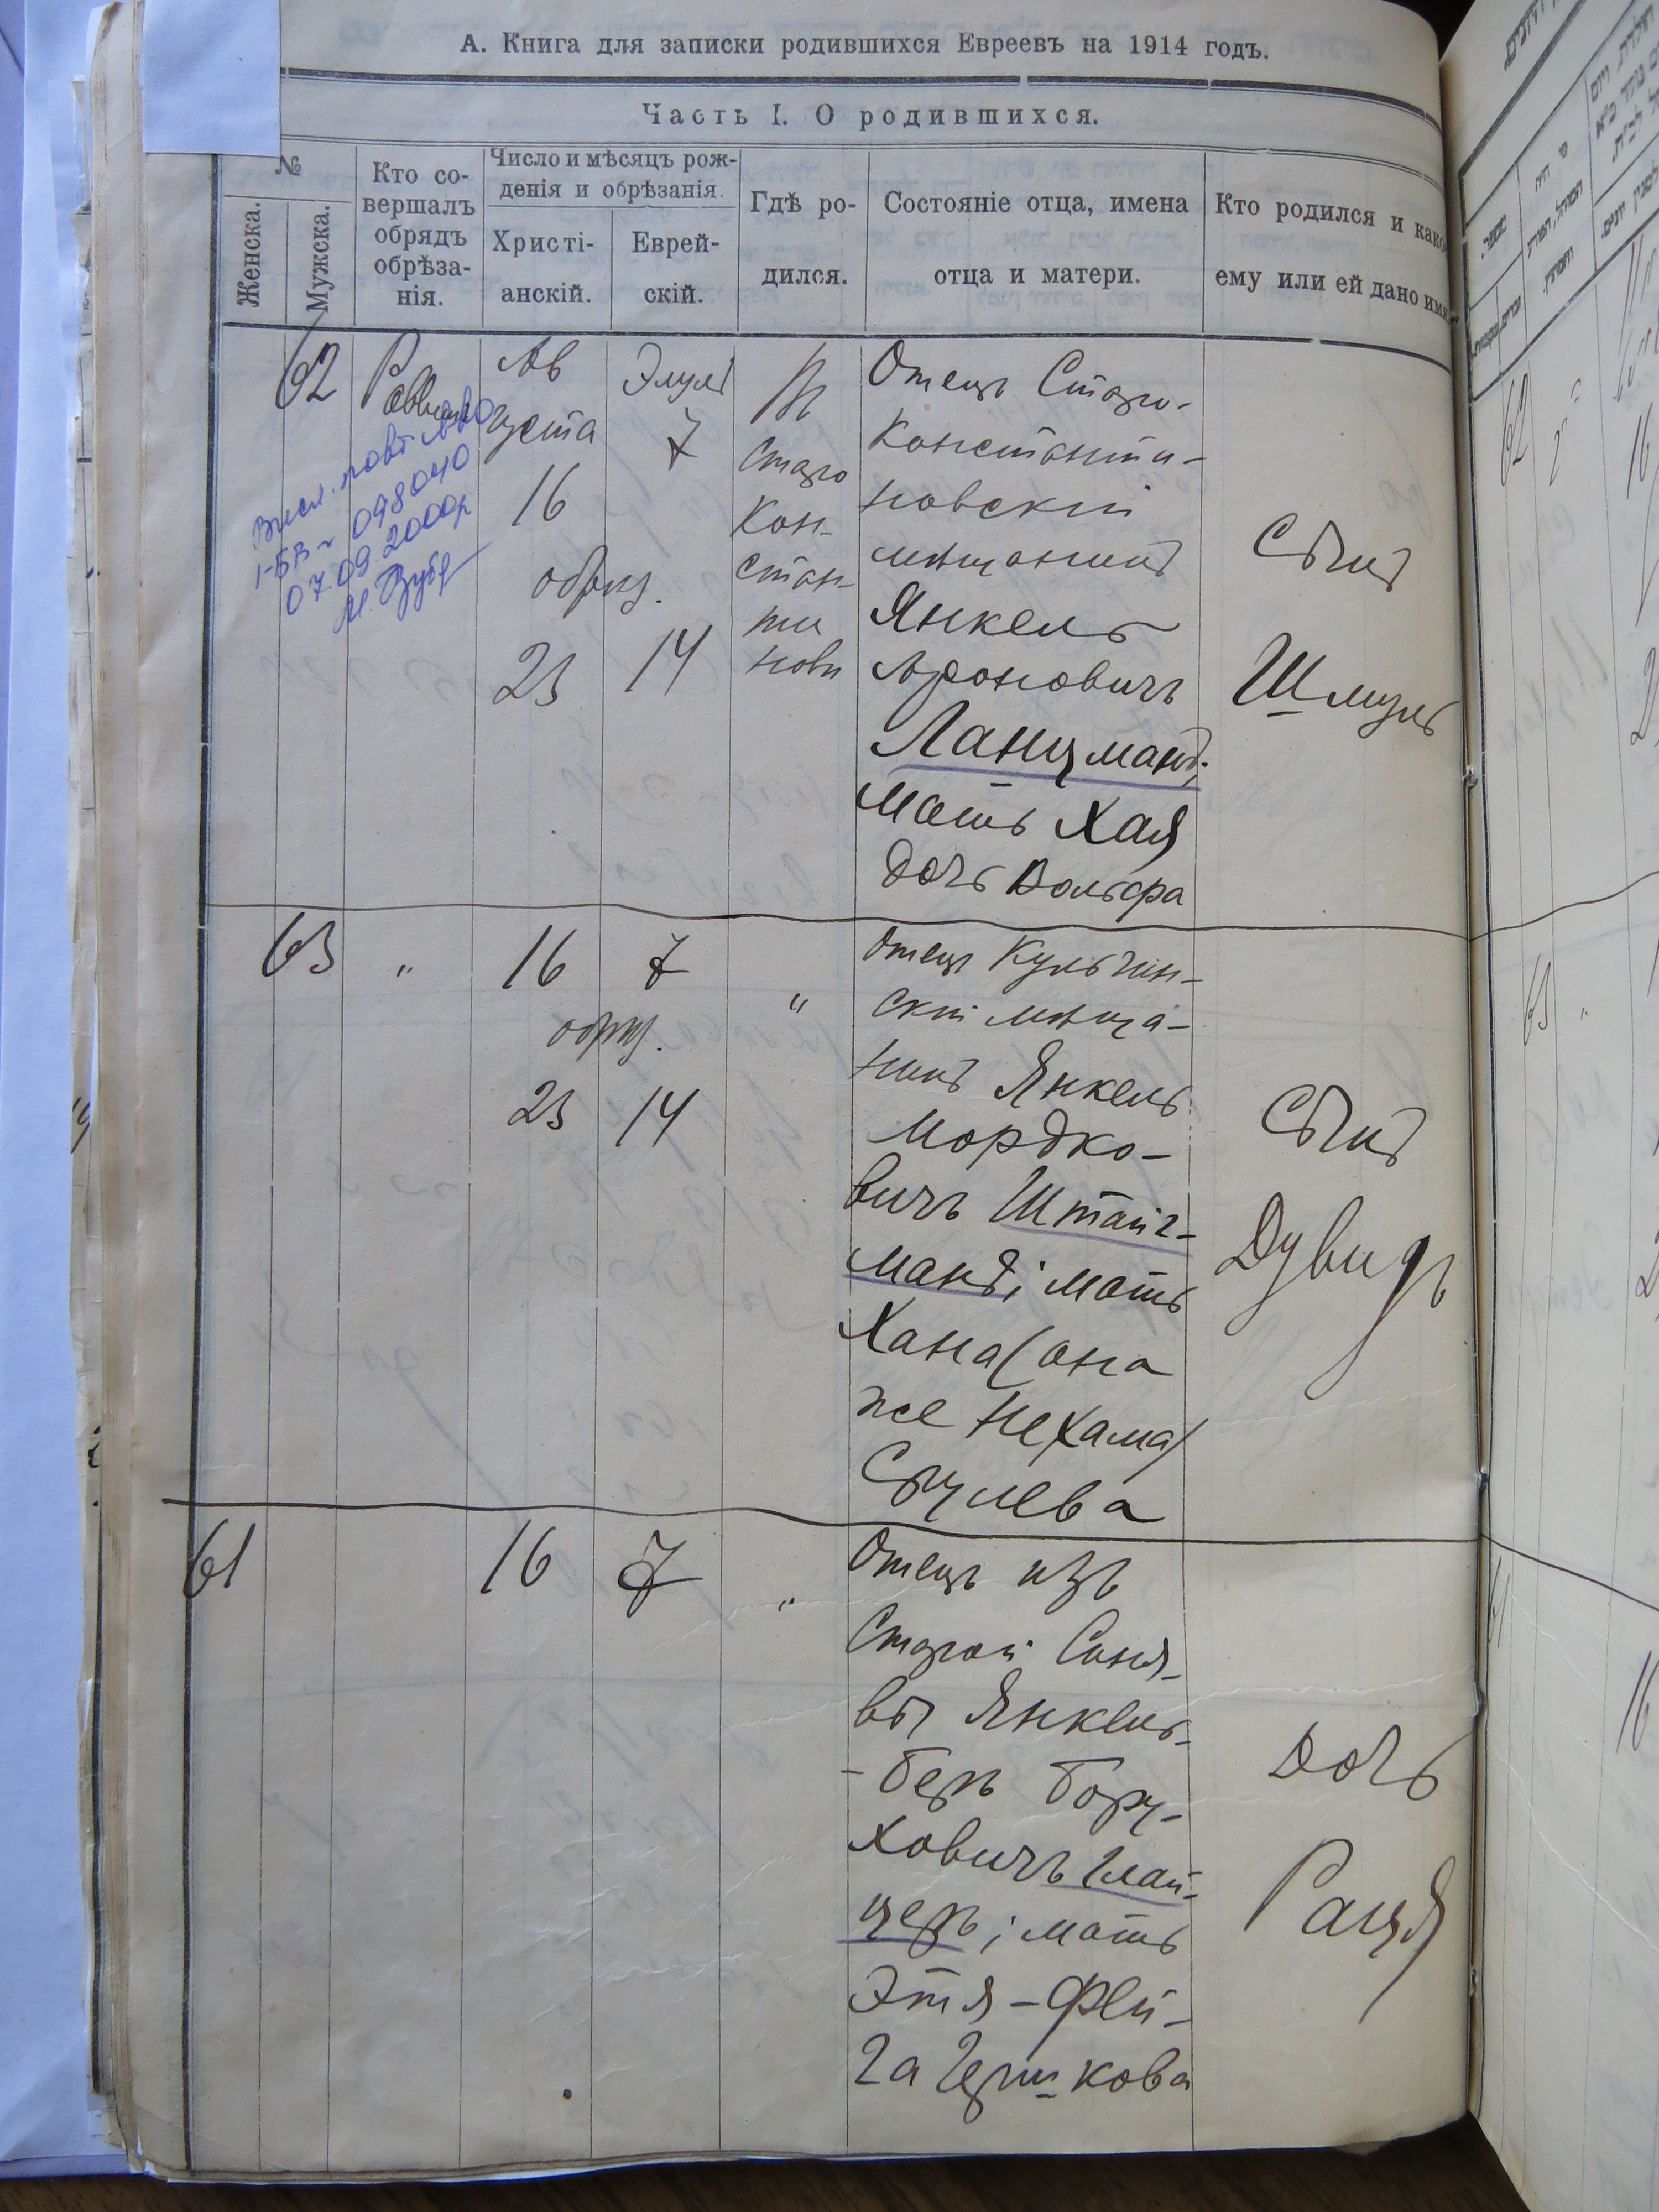 А. Книга для записки родившихся Евреевъ на 1914 годъ.
Часть I. О родившихся.
№
Женска.
Мужска.
Кто со-
вершалъ
обрядъ
обрѣза-
нія.
Число и мѣсяцъ рож-
денія и обрѣзанія.
Христі-
анскій.
Еврей-
скій.
Гдѣ ро-
дился.
Состояніе отца, имена
отца и матери.
Кто родился и како
ему или ей дано имя
62
Раввинъ
Ав
густа
16
обрѣз.
23
Элулъ
7
14
Въ
Старо
Кон-
стан-
ти
новѣ
Отецъ Старо-
константи-
новскій
мѣщанинъ
Янкель
Ароновичъ
Ланцманъ;
мать Хая
дочь Вольфа
Сынъ
Шмуль
1-БВ № 098040
07.09 2000р
63
"
16
7
обрѣз.
23
14
"
Отецъ Кульчин-
скій мѣща-
нинъ Янкель
Мордко-
вичъ Штайг-
манъ; мать
Хана (она
же Нехама)
Срулева
Сынъ
Дувидъ
61
16
7
"
Отецъ изъ
Старой Синя-
вы Янкель-
-Беръ Бору-
ховичъ Глай-
церъ; мать
Этя-Фей-
га Гершкова
Дочь
Рация